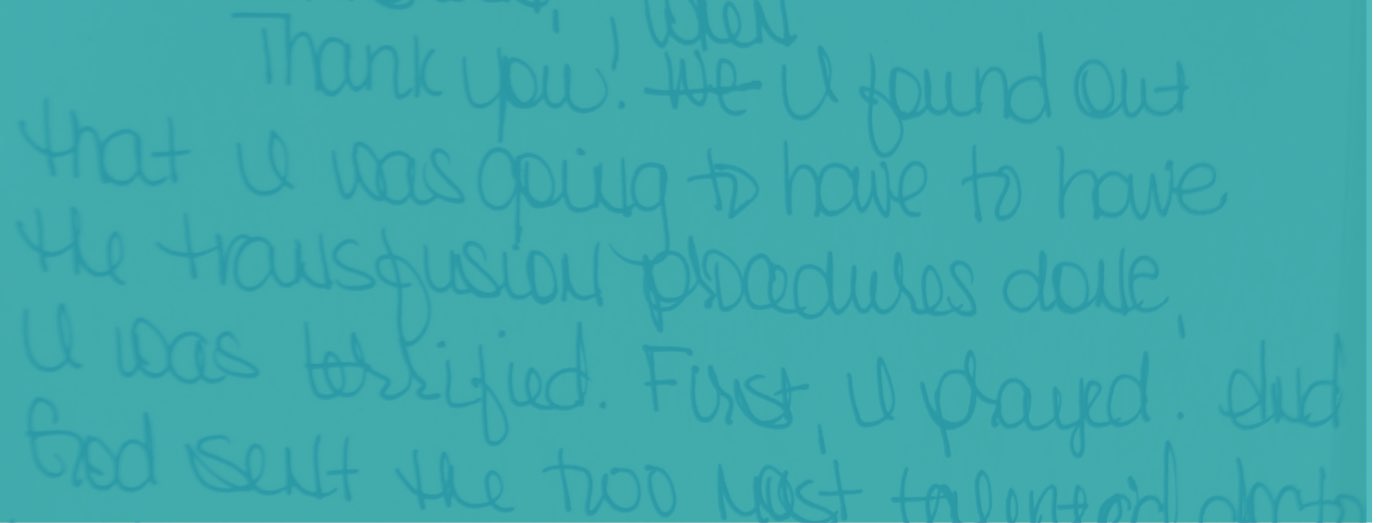 when
Thank you! We I found out
that I was going to have to have
the transfusion procedures done,
I was terrified. First, I prayed. And
God sent the two most talented